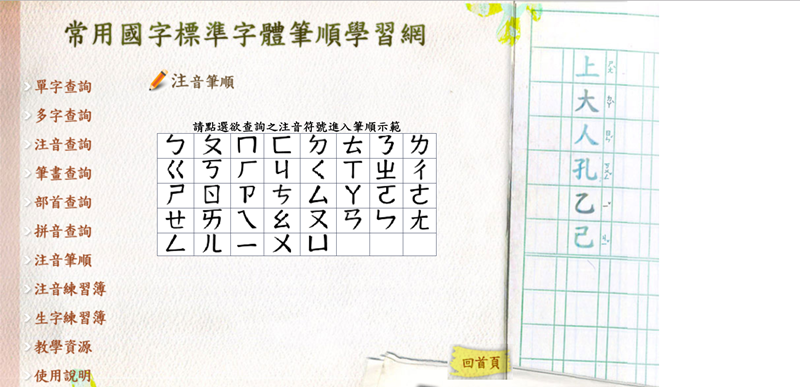 常用國字標準字體筆順學習網
單字查詢
多字查詢
注音查詢
筆畫查詢
部首查詢
拼音查詢
注音筆順
注音練習簿
生字練習簿
教學資源
使用說明
注音筆順
請點選欲查詢之注音符號進入筆順示範
ㄅ ㄆ ㄇ ㄈ ㄉ ㄊ ㄋ ㄌ
ㄍ ㄎ ㄏ ㄐ ㄑ ㄒ ㄓ ㄔ
ㄕ ㄖ ㄗ ㄘ ㄙ ㄚ ㄛ ㄜ
ㄝ ㄞ ㄟ ㄠ ㄡ ㄢ ㄣ ㄤ
ㄥ ㄦ ㄧ ㄨ ㄩ
回首頁
上大人孔乙己